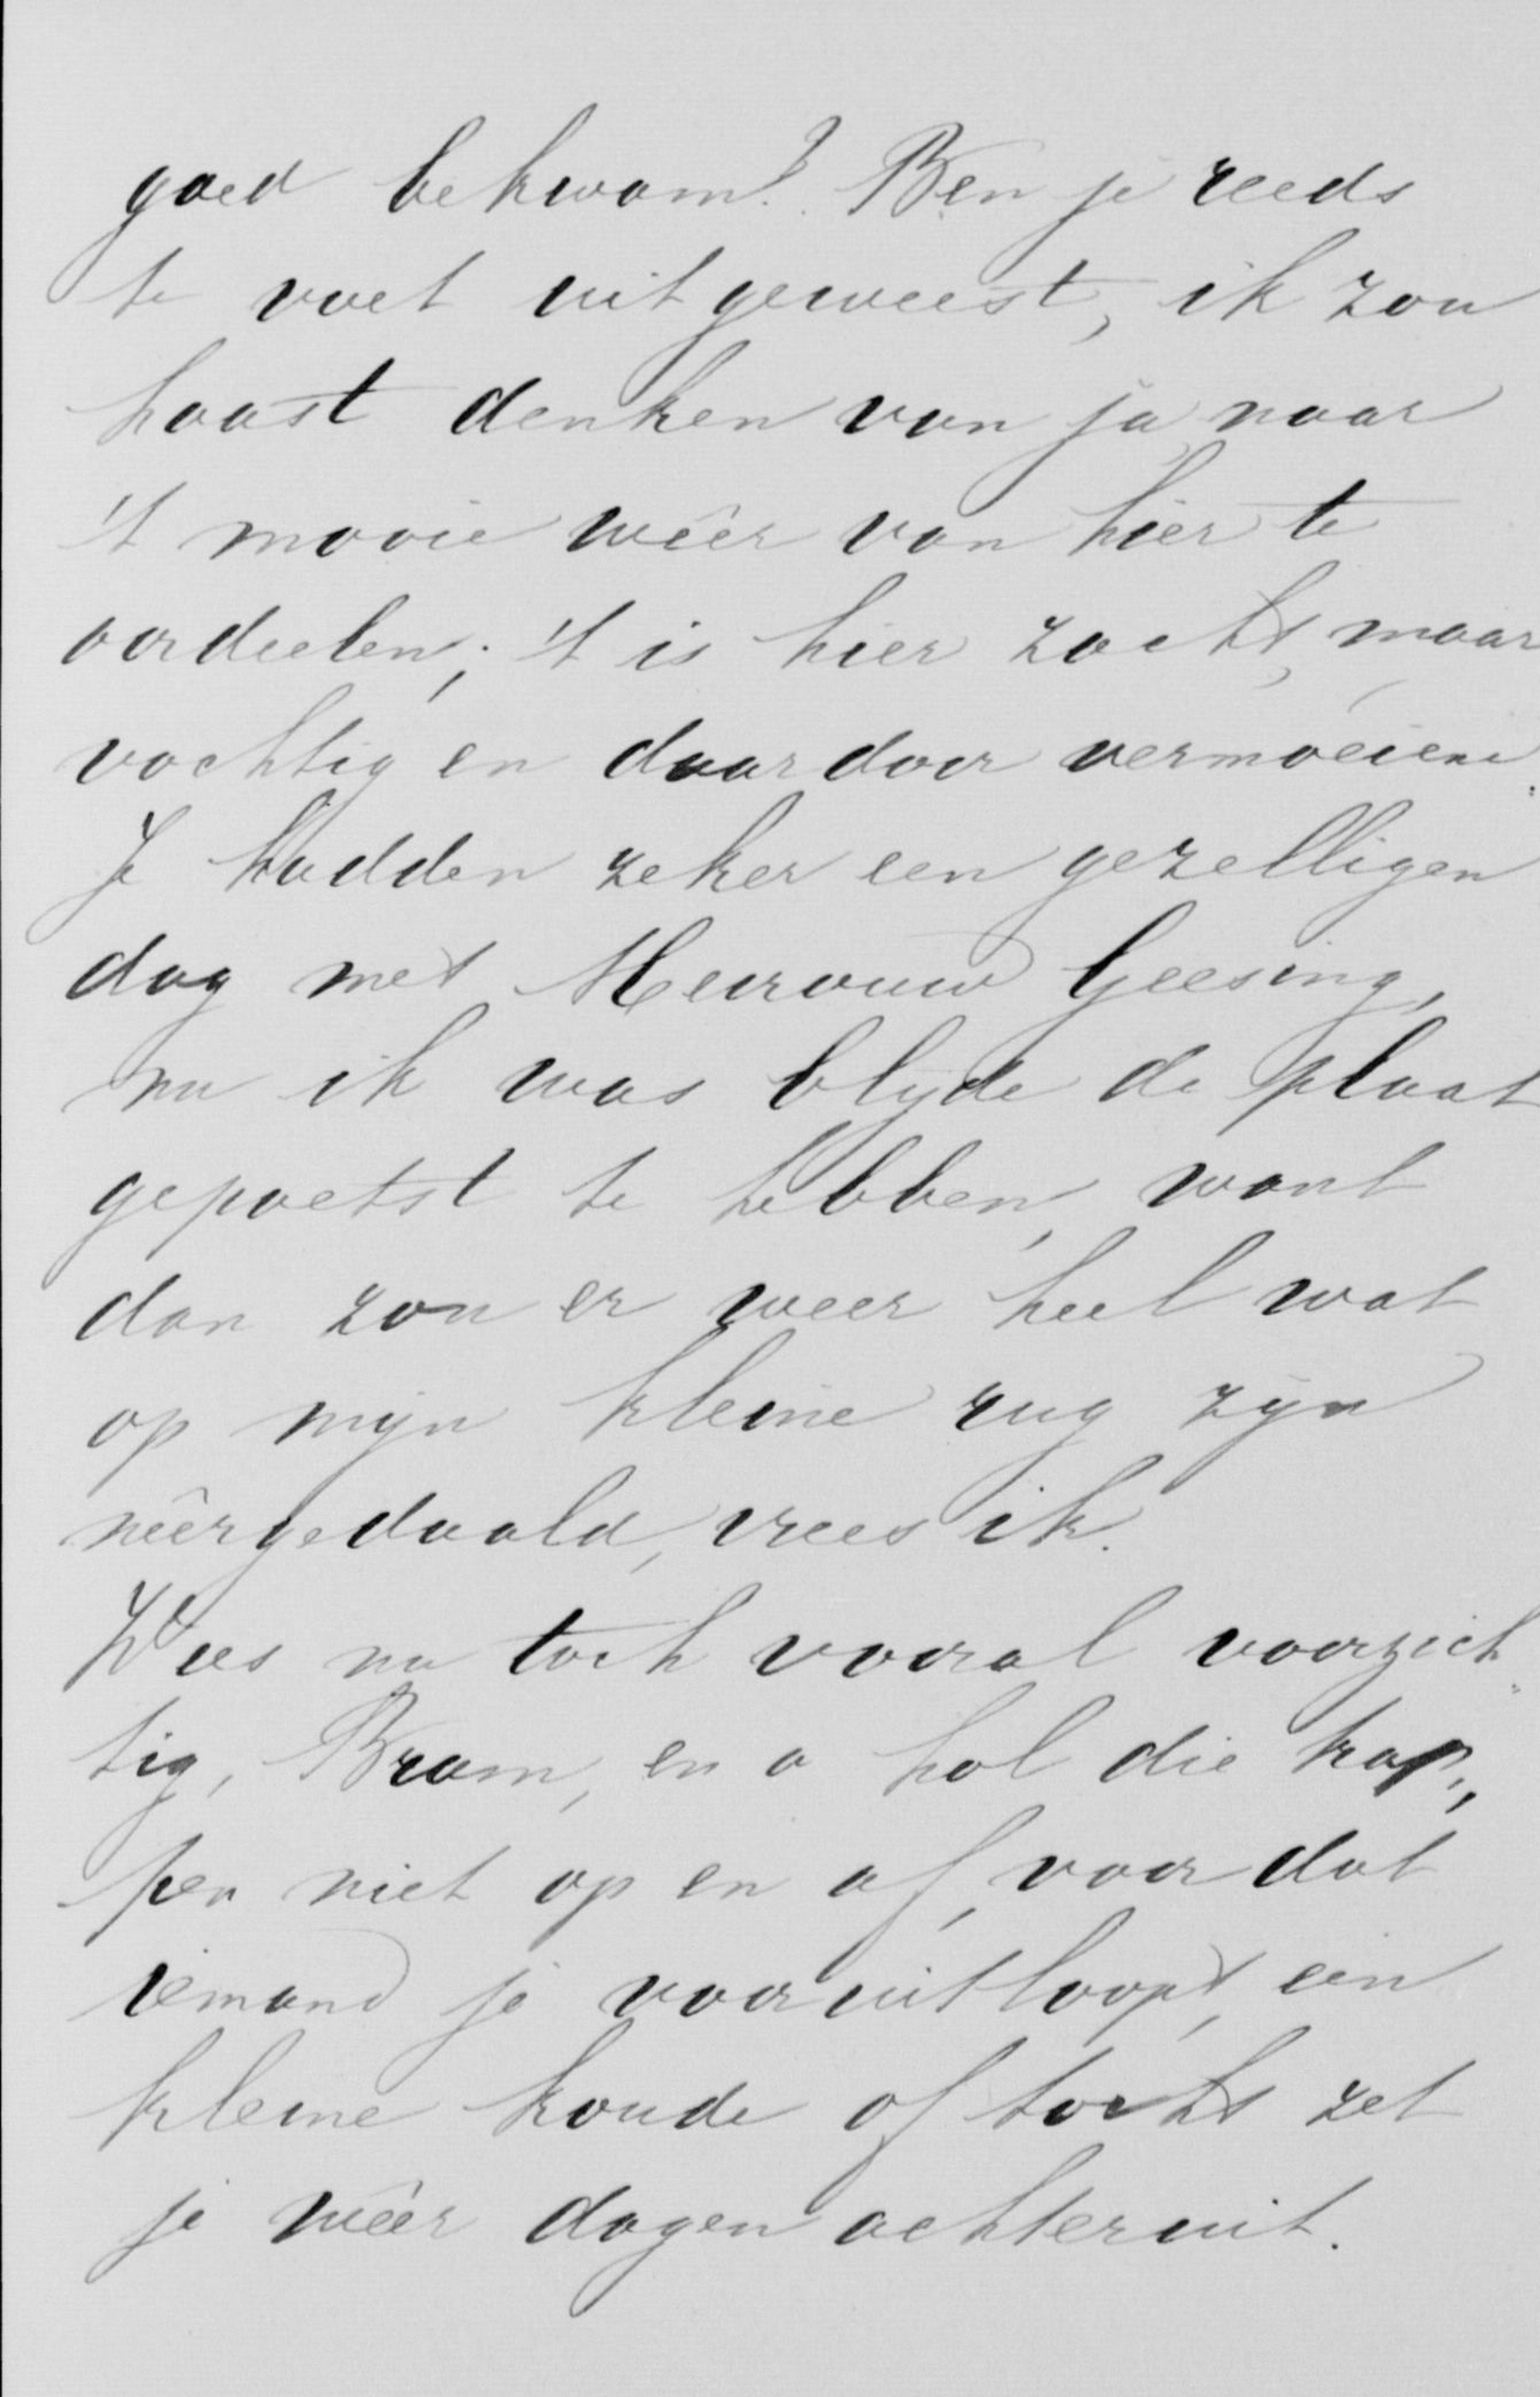 goed bekwam? Ben je reeds
te voet uitgeweest, ik zou
haast denken van ja, naar
't mooie wêer van hier te
oordeelen; 't is hier zacht, maar
vochtig en daardoor vermoeiend.
Je hadden zeker een gezelligen
dag met Mevrouw Geesing,
nu ik was blijde de plaat
gepoetst te hebben, want
dan zou er weer heel wat
op mijn kleine rug zijn
nêergedaald, vrees ik.
Wees nu toch vooral voorzich„
tig, Bram, en o hol die trap„
pen niet op en af, voor dat
iemand je vooruitloopt, een
kleine koude of tocht zet
je wêer dagen achteruit.